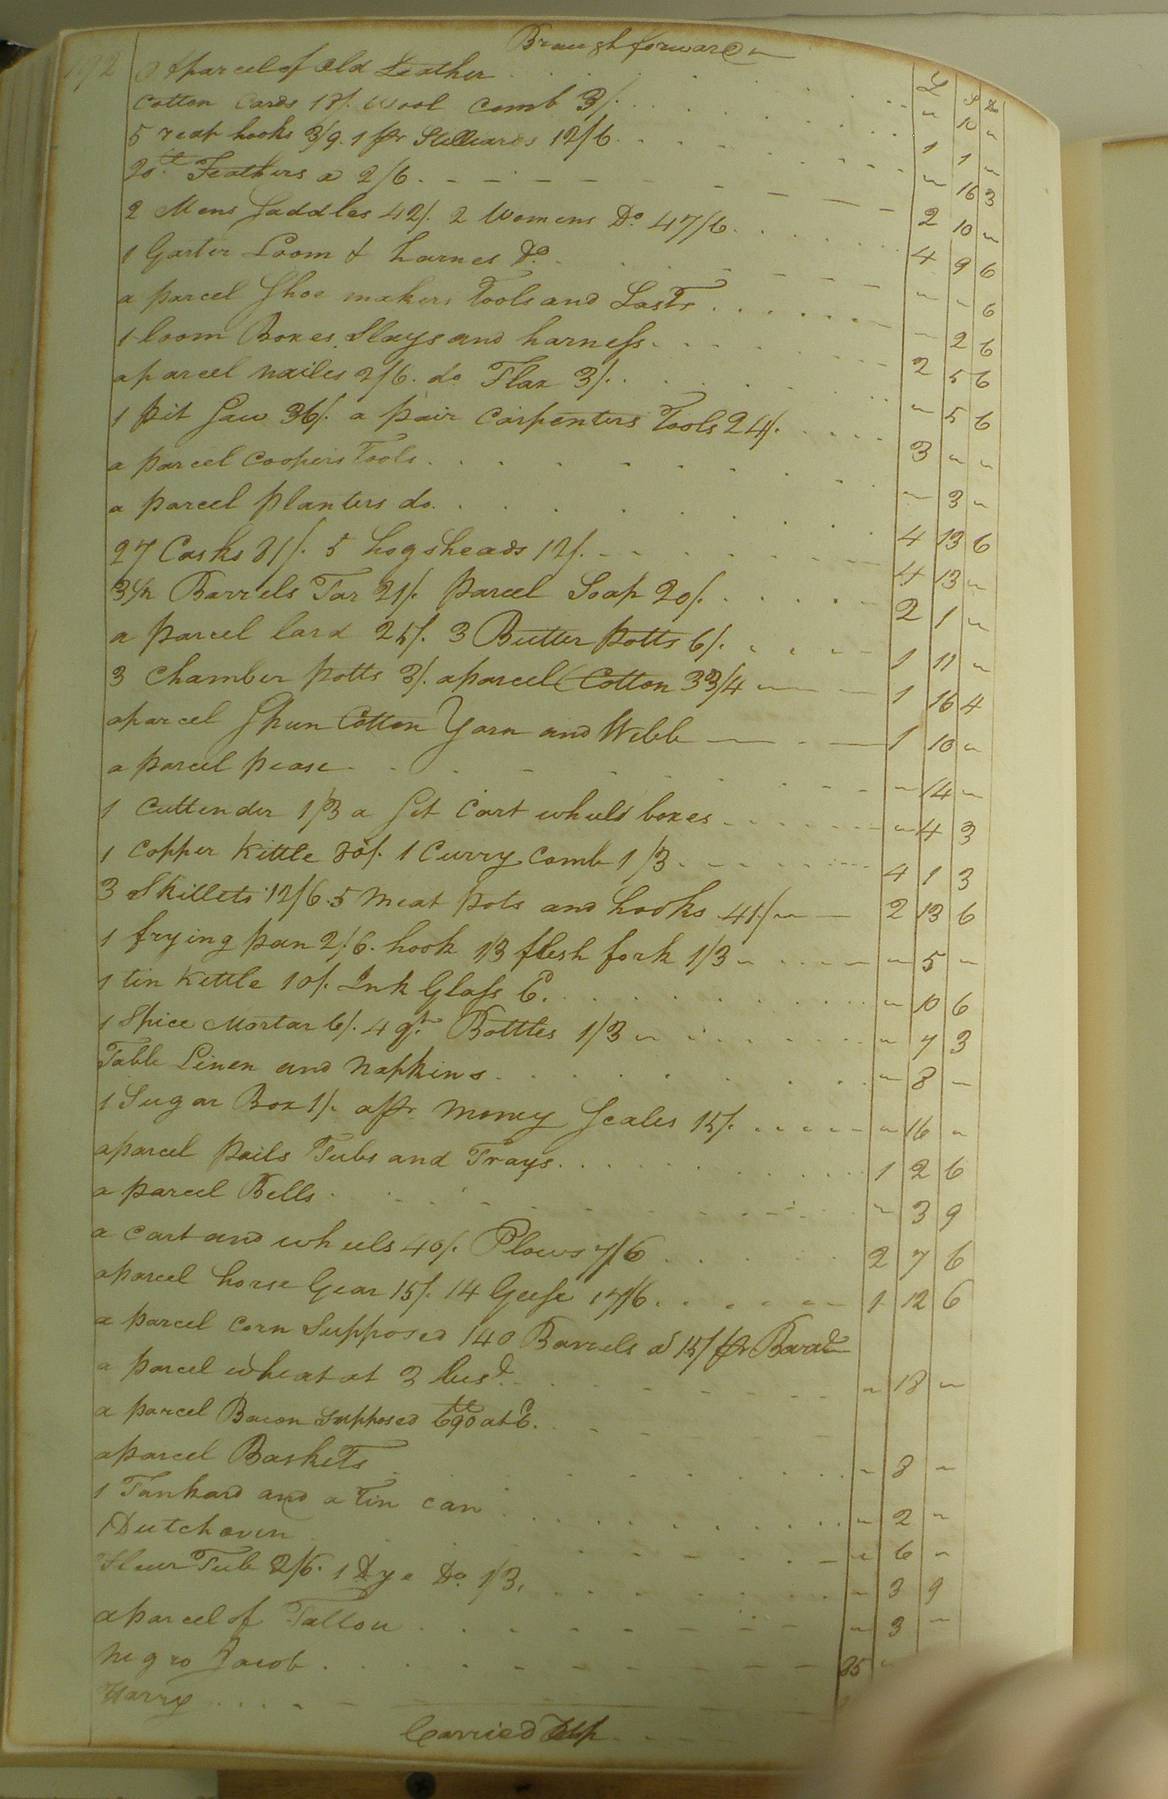 192
Braught forward
A parcel of Old Leather
£ S D
Cotton Cards 18/. Wool Comb 3/. " 12 "
5 reap hooks 3/9. 1 pr Stilliards 12/6. 1 1 "
20 lt Feathers a 2/6. " 16 3
2 Mens Saddles 42/. 2 Womens Do. 47/6. 2 10 "
1 Garter Loom & harnes Do. 4 9 6
a parcel Shoe makers Tools and Lasts " " 6
1 loom Boxes Slays and harness. " 2 6
a parcel nailes 2/6. do Flax 3/. 2 5 6
1 pit Saw 36/. a pair Carpenters Tools 24/. " 5 6
a parcel Coopers Tools. 3 " "
a parcel planters do. " 3 "
27 Casks 81/. 5 hogsheads 12/. 4 13 6
3 1/2 Barrels Tar 21/. parcel Soap 20/. 4 13 "
a parcel lard 25/. 3 Butter potts 6/. 2 1 "
3 Chamber potts 3/. a parcel Cotton 33/4 1 11 "
a parcel Spun Cotton Yarn and Webb 1 16 4
a parcel pease 1 10 "
" 14 "
1 Cuttender 1/3 a Set Cart wheels boxes " 4 3
1 Copper Kettle 80/. 1 Curry Comb 1/3. 4 1 3
3 Skillets 12/6. 5 Meat pots and hooks 41/. 2 13 6
1 frying pan 2/6. hook 1/3 flesh fork 1/3 " 5 "
1 tin Kettle 10/. Ink Glass 6d. " 10 6
1 Spice Mortar 6/. 4 qt. Bottles 1/3 " 7 3
Table Linen and napkins. " 8 "
1 Sugar Box 1/. a pr. money Scales 15/. " 16 "
a parcel pails Tubs and Trays. 1 2 6
a parcel Bells " 3 9
a Cart and wheels 40/. Plows 7/6 2 7 6
a parcel horse Gear 15/. 14 Geese 17/6. 1 12 6
a parcel Corn Supposed 140 Barrels a 15/ pr Barrel
a parcel wheat at 3 Bus. " 18 "
a parcel Bacon Supposed 690 lt at 6d.
a parcel Baskets " 8 "
1 Tankard and a tin can " 2 "
1 Dutch oven " 6 "
Flour Tub 2/6. 1 Dye Do. 1/3. " 3 9
a parcel of Tallow " 3 "
negro Jacob 85 "
Harry
Carried Up